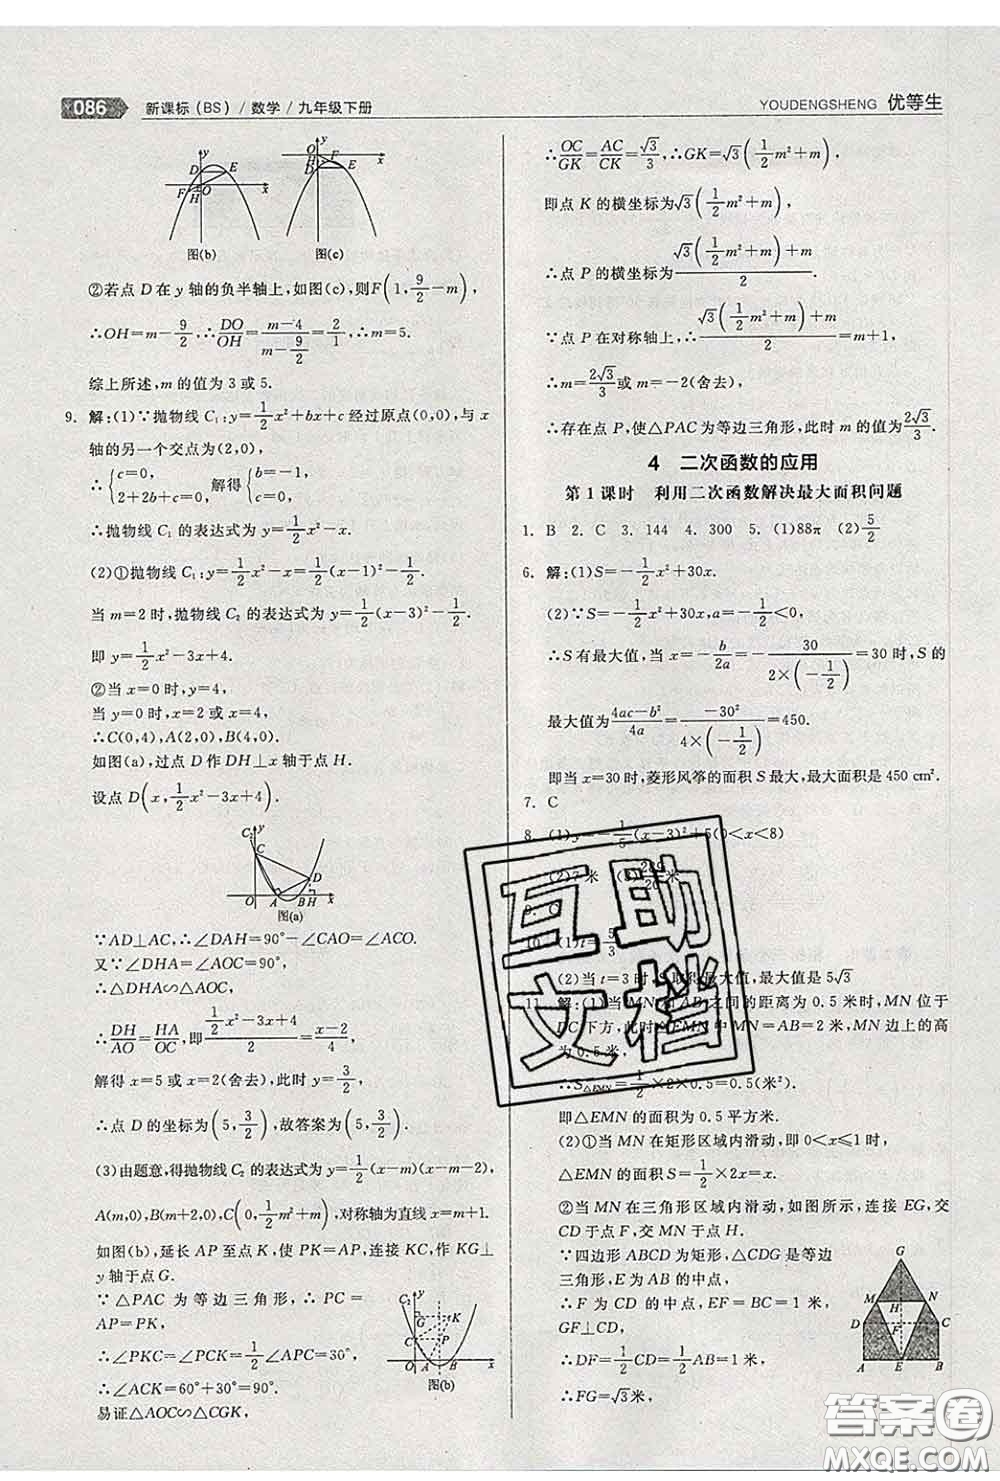 086 新课标(BS)/数学/九年级下册
YOUDENGSHENG 优等生
图(b) 图(c)
②若点 D 在 y 轴的负半轴上,如图(c),则F(1, 9/2−m)
∴OH=m−9/2,∴DO/OH=(m−4)/(m−9/2)=2/1,∴m=5.
综上所述,m 的值为 3 或 5.
9. 解:(1)∵抛物线 C₁:y=1/2x²+bx+c 经过原点(0,0),与 x
轴的另一个交点为(2,0),
∴{c=0, 2+2b+c=0, 解得{b=−1, c=0.
∴抛物线 C₁ 的表达式为 y=1/2x²−x.
(2)①抛物线 C₁:y=1/2x²−x=1/2(x−1)²−1/2.
当 m=2 时,抛物线 C₂ 的表达式为 y=1/2(x−3)²−1/2,
即 y=1/2x²−3x+4.
②当 x=0 时,y=4,
当 y=0 时,x=2 或 x=4,
∴C(0,4),A(2,0),B(4,0).
如图(a),过点 D 作 DH⊥x 轴于点 H.
设点 D(x, 1/2x²−3x+4).
图(a)
∵AD⊥AC,∴∠DAH=90°−∠OAC=∠ACO.
又∵∠DHA=∠AOC=90°,
∴△DHA∽△AOC,
∴DH/AO=HA/OC,即(1/2x²−3x+4)/2=(x−2)/4,
解得 x=5 或 x=2(舍去),此时 y=3/2,
∴点 D 的坐标为(5, 3/2),故答案为(5, 3/2).
(3)由题意,得抛物线 C₂ 的表达式为 y=1/2(x−m)(x−m−2),
A(m,0),B(m+2,0),C(0, 1/2m²+m),对称轴为直线 x=m+1.
如图(b),延长 AP 至点 K,使 PK=PA,连接 KC,作 KG⊥
y 轴于点 G.
∵△PAC 为等边三角形,∴PC=
AP=PK,
∴∠PKC=∠PCK=1/2∠APC=30°,
∴∠ACK=60°+30°=90°.
易证△AOC∽△CGK,
图(b)
∴OC/GK=AC/CK=√3/3,∴GK=√3(1/2m²+m),
即点 K 的横坐标为√3(1/2m²+m),
∴点 P 的横坐标为(√3(1/2m²+m)+m)/2.
∵点 P 在对称轴上,∴(√3(1/2m²+m)+m)/2=m+1,
∴m=2√3/3或 m=−2(舍去),
∴存在点 P,使△PAC为等边三角形,此时 m 的值为2√3/3.
4 二次函数的应用
第 1 课时 利用二次函数解决最大面积问题
1. B 2. C 3. 144 4. 300 5. (1)88π (2)5/2
6. 解:(1)S=−1/2x²+30x.
(2)∵S=−1/2x²+30x,a=−1/2<0,
∴S 有最大值,当 x=−b/2a=−30/(2×(−1/2))=30 时,S 的
最大值为(4ac−b²)/4a=−30²/(4×(−1/2))=450.
即当 x=30 时,菱形风筝的面积 S 最大,最大面积是 450 cm².
7. C
8. (1)y=−1/5(x−3)²+5(0<x<8)
(2)7 米
9. C
10. (1)t=5/3
(2)当 t=3 时,S 取得最大值,最大值是 5√3
11. 解:(1)当 MN 和 AB 之间的距离为 0.5 米时,MN 位于
DC 下方,此时△EMN 中 MN=AB=2 米,MN 边上的高
为 0.5 米,
∴S△EMN=1/2×2×0.5=0.5(米²).
即△EMN 的面积为 0.5 平方米.
(2)①当 MN 在矩形区域内滑动,即 0<x≤1 时,
△EMN 的面积 S=1/2×2x=x.
②当 MN 在三角形区域内滑动,如图所示,连接 EG,交
CD于点 F,交 MN 于点 H.
∵四边形 ABCD 为矩形,△CDG 是等边
三角形,E 为 AB 的中点,
∴F 为 CD 的中点,EF=BC=1 米,
GF⊥CD,
∴DF=1/2CD=1/2×2=1(米),
∴FG=√3米.
互助
文档
答案圈
MXQE.COM